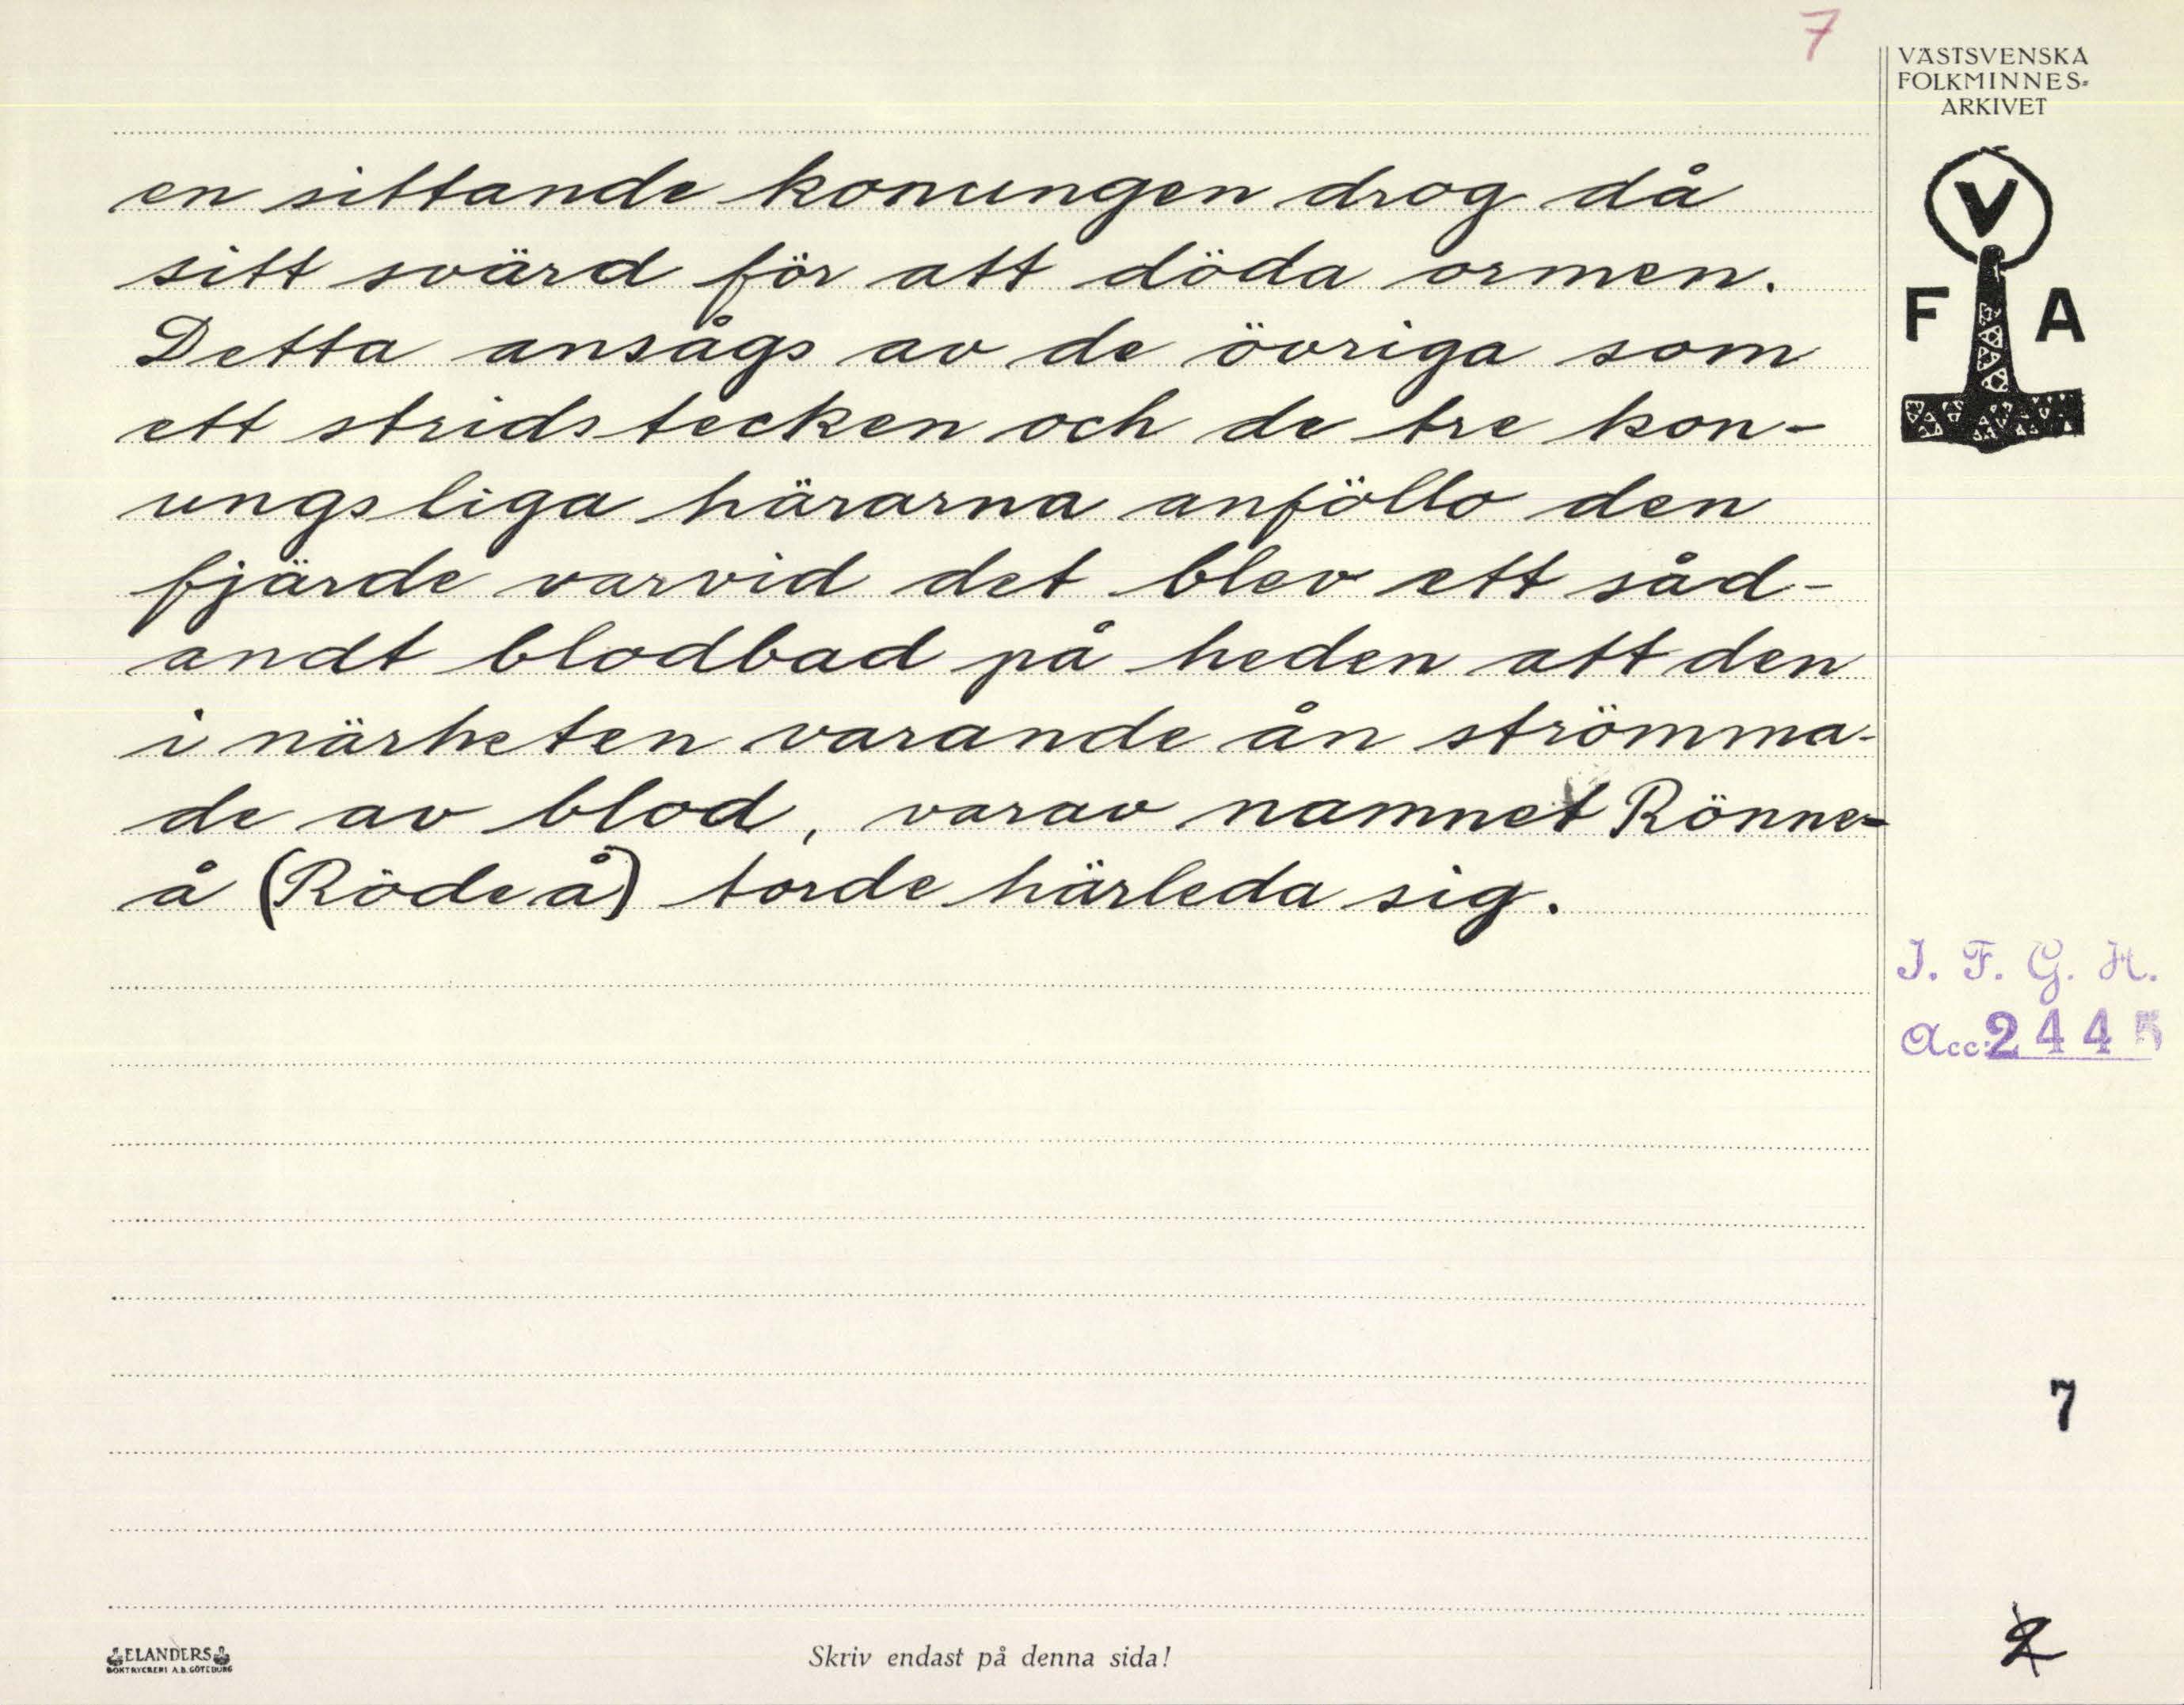 7
VÄSTSVENSKA
FOLKMINNES-
ARKIVET
V
F A
en sittande konungen drog då
sitt svärd för att döda ormen.
Detta ansågs av de övriga som
ett stridstecken och de tre kon-
ungsliga härarna anföllo den
fjärde varvid det blev ett såd-
andt blodbad på heden att den
i närheten varande ån strömma-
de av blod, varav namnet Rönne-
å (Röde å) torde härleda sig.
I. F. G. H.
Acc. 2445
7
2
ELANDERS
BOKTRYCKERI A.B. GÖTEBORG
Skriv endast på denna sida!